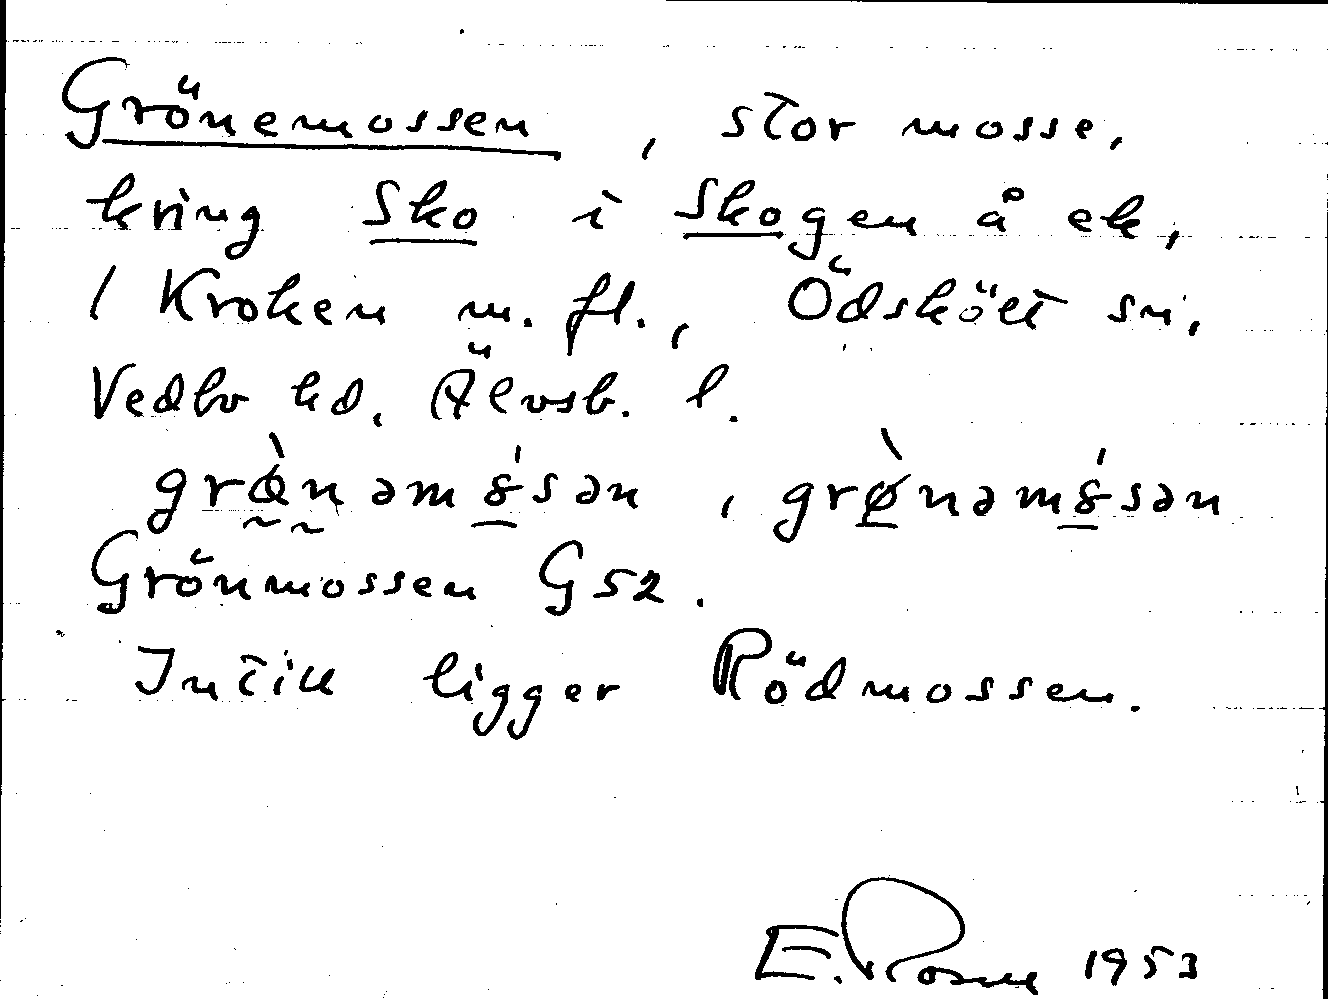 Grönemossen, stor mosse,
kring Sko i Skogen å ek,
/ Kroken m. fl., Ödskölt sn,
Vedbo hd. Älvsb. l.
grø̀nəmȣ́sən, grø̀nəmȣ́sən
Grönmossen G 52.
Intill ligger Rödmossen.
E. Rosell 1953